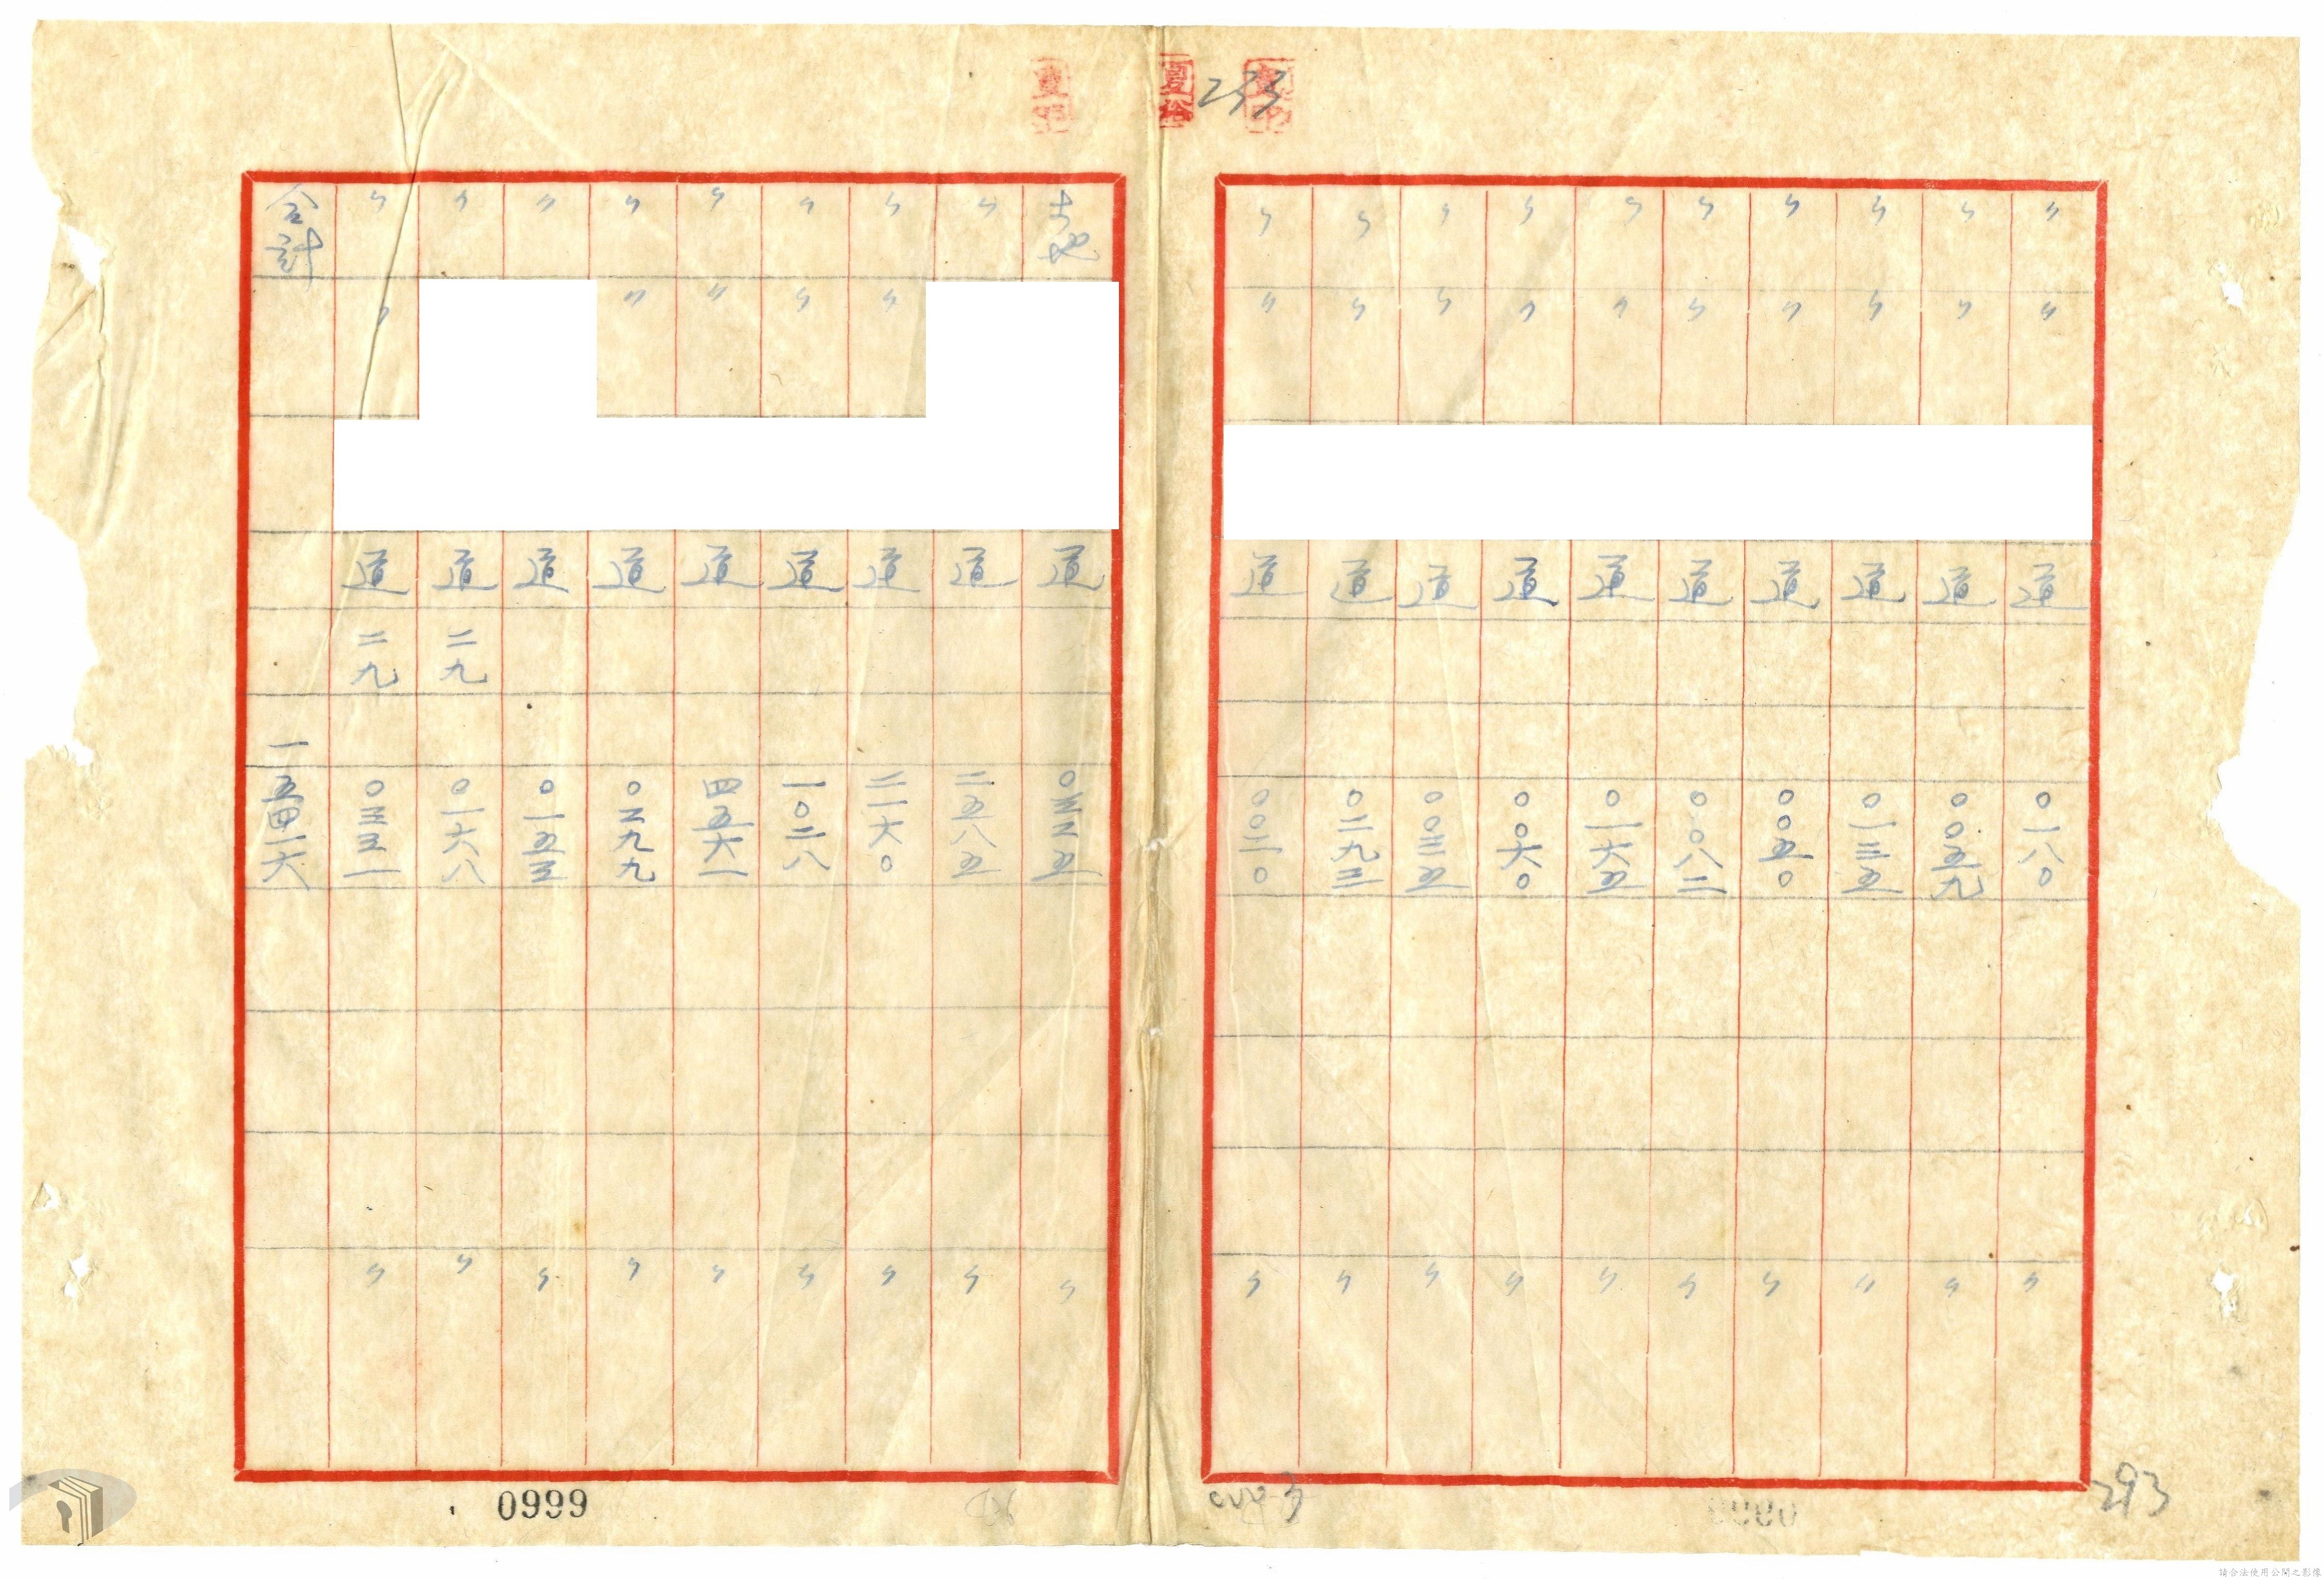 233
〃 〃 道 〇一八〇 〃
〃 〃 道 〇〇五九 〃
〃 〃 道 〇一三五 〃
〃 〃 道 〇〇五〇 〃
〃 〃 道 〇〇八二 〃
〃 〃 道 〇一六五 〃
〃 〃 道 〇〇六〇 〃
〃 〃 道 〇〇三五 〃
〃 〃 道 〇二九三 〃
〃 〃 道 〇〇三〇 〃
土地 道 〇三二五 〃
〃 道 二五八五 〃
〃 〃 道 二一六〇 〃
〃 〃 道 一〇二八 〃
〃 〃 道 四五六一 〃
〃 〃 道 〇二九九 〃
〃 道 〇一五三 〃
〃 道 二九 〇一六八 〃
〃 〃 道 二九 〇三三一 〃
合計 一五四一六
293
0999
請合法使用公開之影像